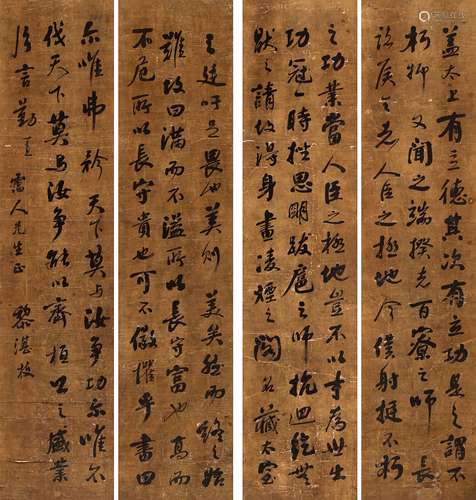 蓋太上有立德其次有立功是之謂不
朽抑又聞之端揆者百寮之師長
諸侯王者人臣之極地今僕射挺不朽
之功業當人臣之極地豈不以才為世出
功冠一時挫思明跋扈之師抗迴紇無
猒之請故得身畫凌煙之閣名藏太室
之廷吁足畏也美則美矣然而終之始
難故曰滿而不溢所以長守富也高而
不危所以長守貴也可不儆懼乎書曰
爾唯弗矜天下莫與汝爭功爾唯不
伐天下莫與汝爭能以齊桓公之盛業
片言勤王 人先生正 黎湛枝